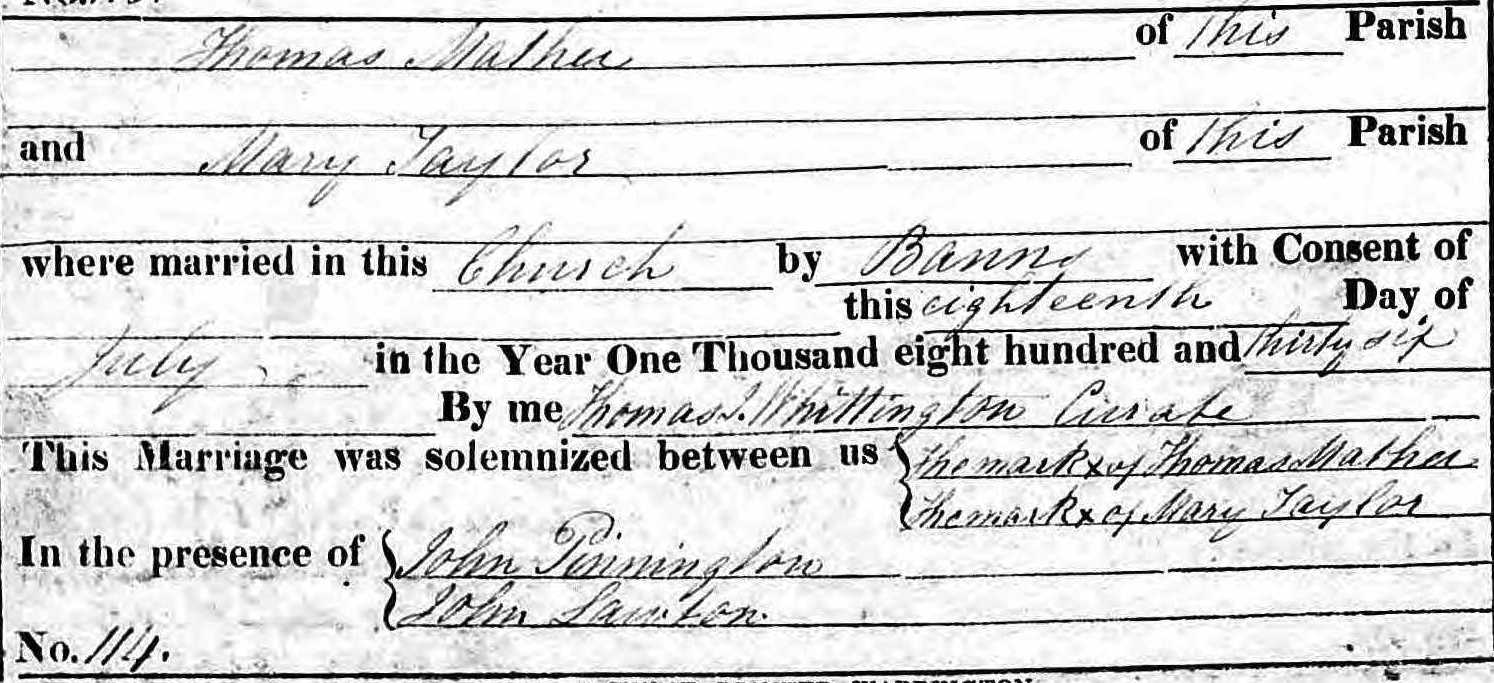 Thomas Mather of this Parish
and Mary Taylor of this Parish
where married in this Church by Banns with Consent of
this eighteenth Day of
July in the Year One Thousand eight hundred and thirty six
By me Thomas J. Whittington Curate
This Marriage was solemnized between us { the mark x of Thomas Mather
{ the mark x of Mary Taylor
In the presence of { John Pinnington
{ John Lawton.
No. 114.